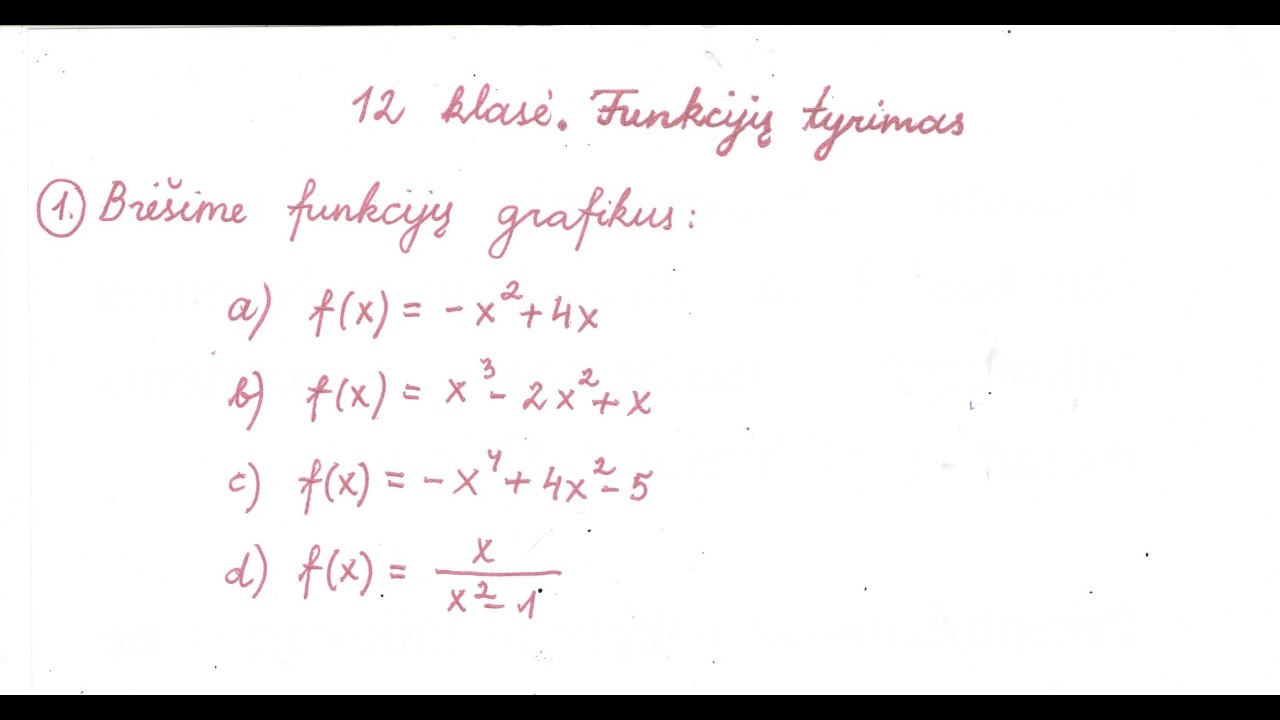 12 klasė. Funkcijų tyrimas
1. Brėšime funkcijų grafikus:
a) f(x) = -x² + 4x
b) f(x) = x³ - 2x² + x
c) f(x) = -x⁴ + 4x² - 5
d) f(x) = x / (x² - 1)